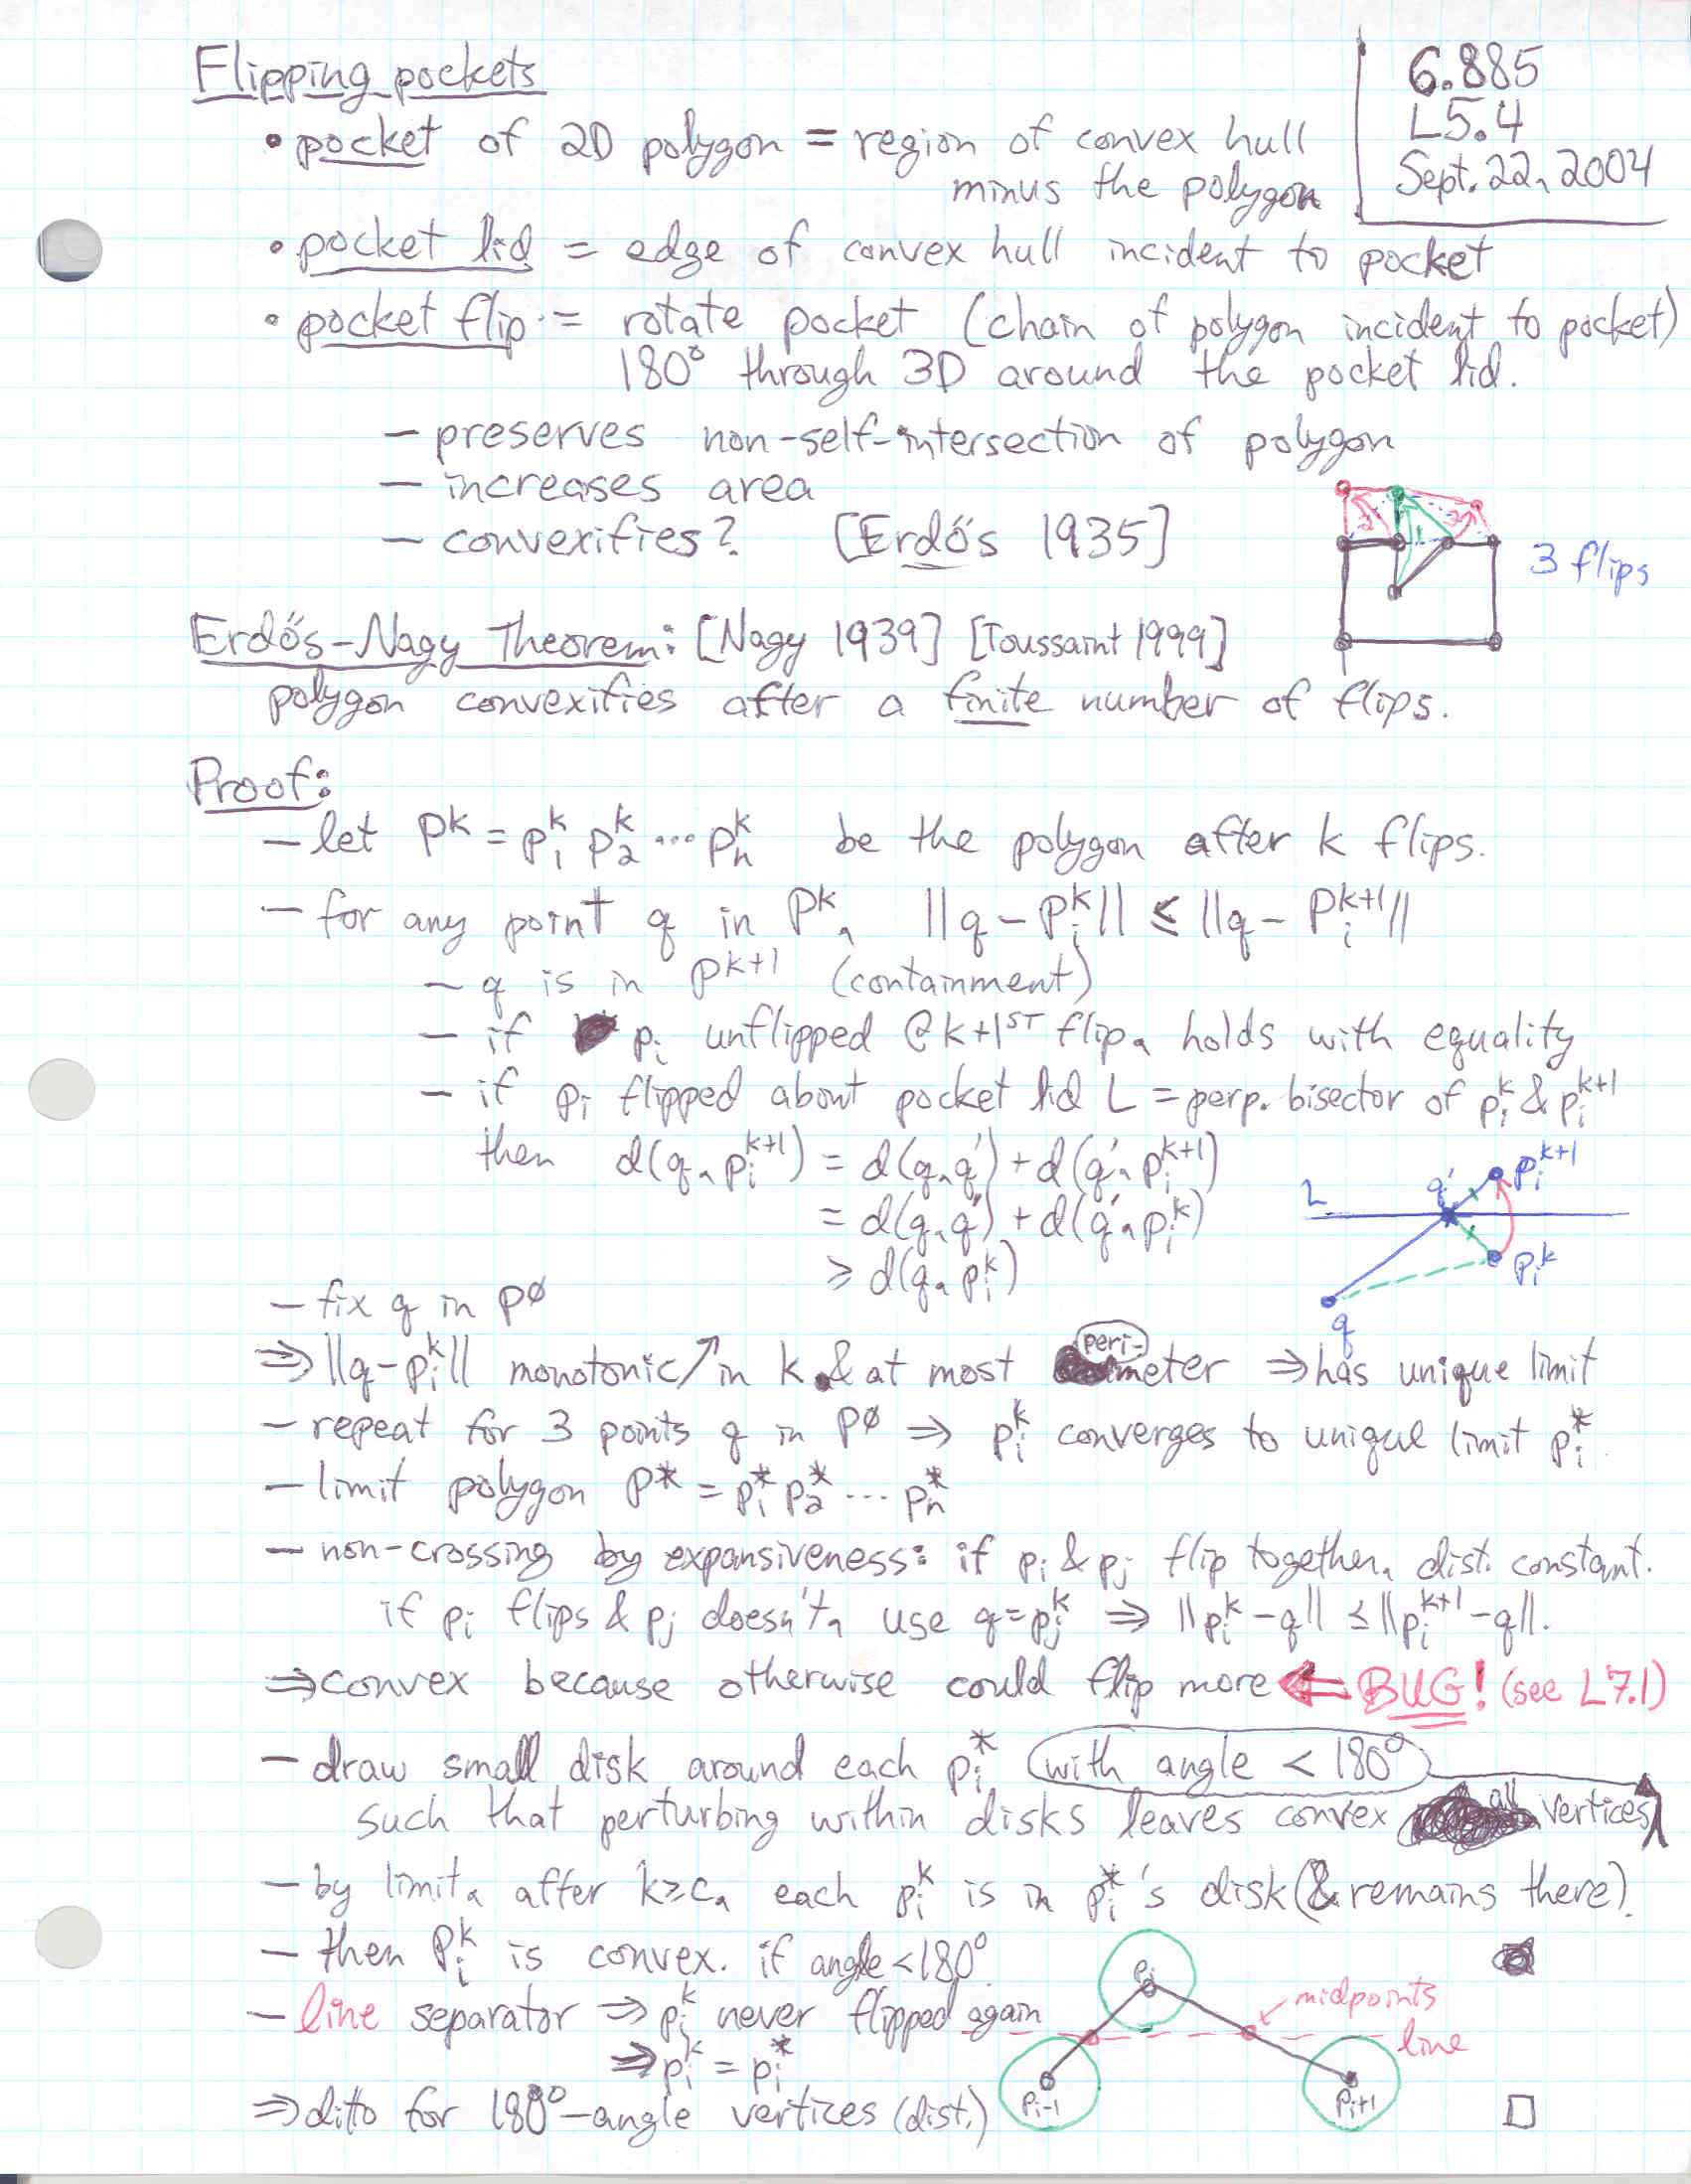 Flipping pockets
6.885
L5.4
Sept. 22, 2004
• pocket of 2D polygon = region of convex hull
minus the polygon
• pocket lid = edge of convex hull incident to pocket
• pocket flip = rotate pocket (chain of polygon incident to pocket)
180° through 3D around the pocket lid.
– preserves non-self-intersection of polygon
– increases area
– convexifies? [Erdős 1935]
3 flips
Erdős-Nagy Theorem: [Nagy 1939] [Toussaint 1999]
polygon convexifies after a finite number of flips.
Proof:
– let P^k = p_1^k p_2^k ... p_n^k be the polygon after k flips.
– for any point q in P^k, ||q - p_i^k|| ≤ ||q - p_i^{k+1}||
– q is in P^{k+1} (containment)
– if p_i unflipped @ k+1^{ST} flip, holds with equality
– if p_i flipped about pocket lid L = perp. bisector of p_i^k & p_i^{k+1}
then d(q, p_i^{k+1}) = d(q, q') + d(q', p_i^{k+1})
= d(q, q') + d(q', p_i^k)
≥ d(q, p_i^k)
L q' p_i^{k+1}
p_i^k
q
– fix q in P^0
⇒ ||q - p_i^k|| monotonic ↗ in k & at most perimeter ⇒ has unique limit
– repeat for 3 points q in P^0 ⇒ p_i^k converges to unique limit p_i^*.
– limit polygon P^* = p_1^* p_2^* ... p_n^*
– non-crossing by expansiveness: if p_i & p_j flip together, dist. constant.
if p_i flips & p_j doesn't, use q = p_j^k ⇒ ||p_i^k - q|| ≤ ||p_i^{k+1} - q||.
⇒ convex because otherwise could flip more ⇐ BUG! (see L7.1)
– draw small disk around each p_i^* (with angle < 180°)
such that perturbing within disks leaves convex all vertices
– by limit, after k ≥ c, each p_i^k is in p_i^*'s disk (& remains there).
– then P_i^k is convex. if angle < 180°
– line separator ⇒ p_i^k never flipped again
⇒ p_i^k = p_i^*
⇒ ditto for 180°-angle vertices (dist.)
p_i
midpoints
line
p_{i-1}
p_{i+1}